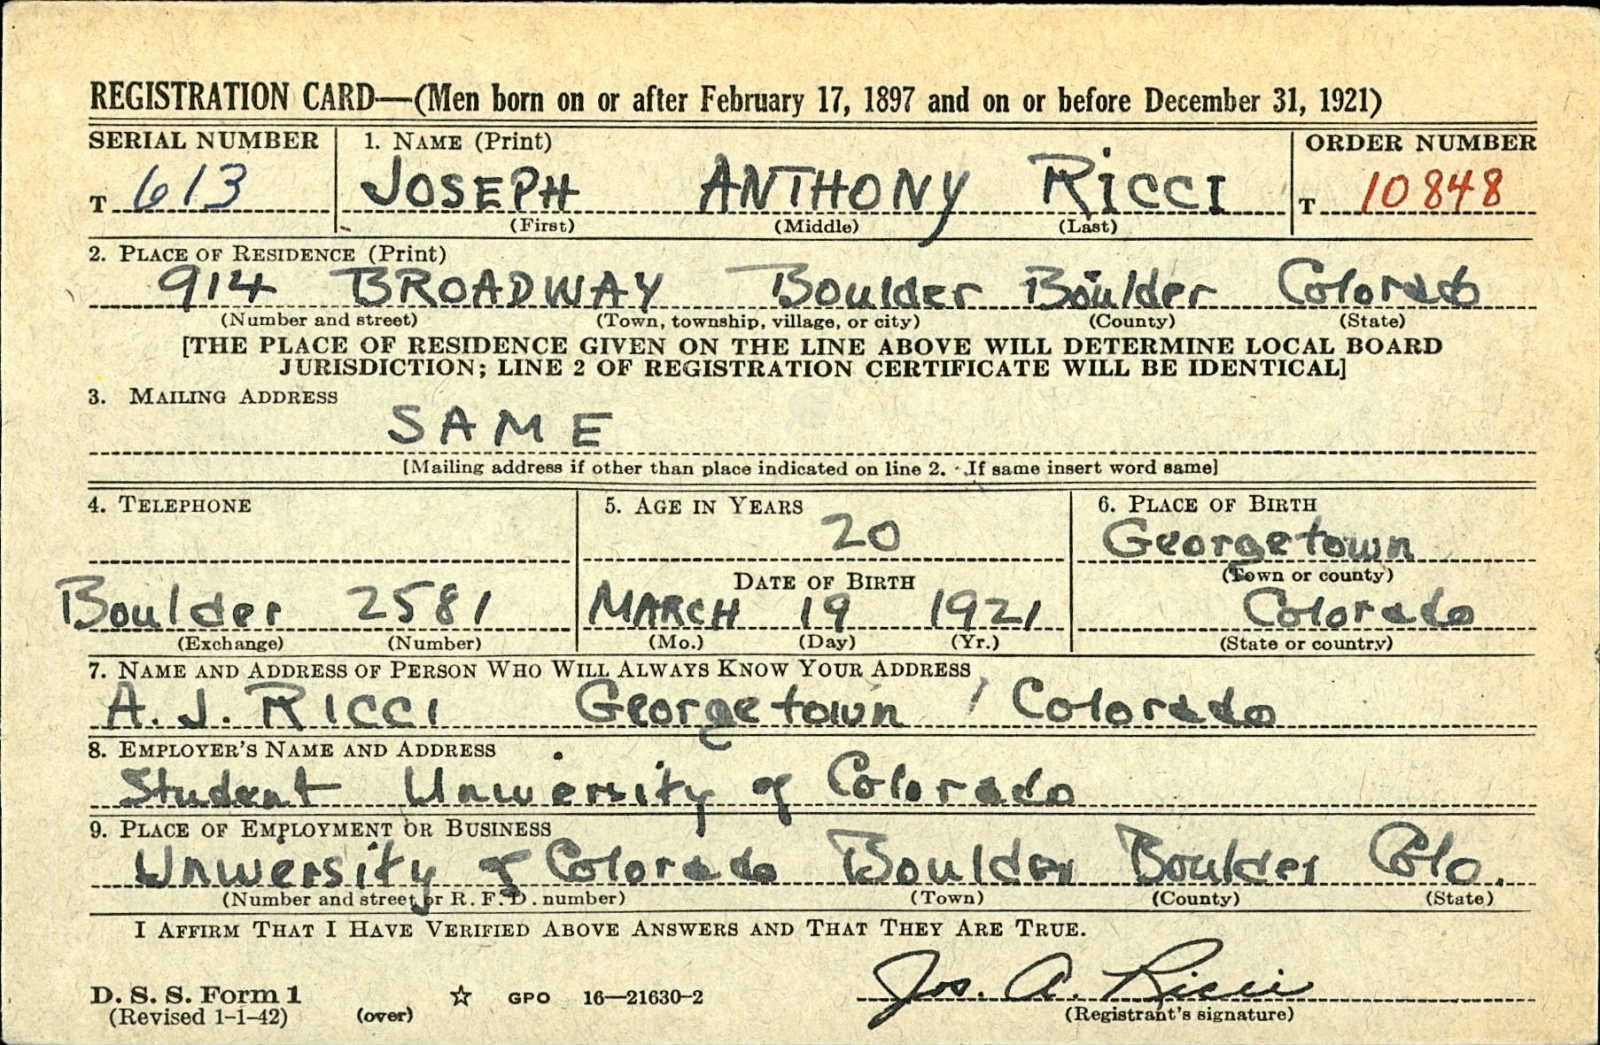 REGISTRATION CARD—(Men born on or after February 17, 1897 and on or before December 31, 1921)
SERIAL NUMBER 1. NAME (Print) ORDER NUMBER
T 613 JOSEPH ANTHONY RICCI T 10848
(First) (Middle) (Last)
2. PLACE OF RESIDENCE (Print)
914 BROADWAY Boulder Boulder Colorado
(Number and street) (Town, township, village, or city) (County) (State)
[THE PLACE OF RESIDENCE GIVEN ON THE LINE ABOVE WILL DETERMINE LOCAL BOARD
JURISDICTION; LINE 2 OF REGISTRATION CERTIFICATE WILL BE IDENTICAL]
3. MAILING ADDRESS
SAME
[Mailing address if other than place indicated on line 2. If same insert word same]
4. TELEPHONE 5. AGE IN YEARS 6. PLACE OF BIRTH
20 Georgetown
DATE OF BIRTH (Town or county)
Boulder 2581 MARCH 19 1921 Colorado
(Exchange) (Number) (Mo.) (Day) (Yr.) (State or country)
7. NAME AND ADDRESS OF PERSON WHO WILL ALWAYS KNOW YOUR ADDRESS
A. J. RICCI Georgetown, Colorado
8. EMPLOYER'S NAME AND ADDRESS
Student University of Colorado
9. PLACE OF EMPLOYMENT OR BUSINESS
University of Colorado Boulder Boulder Colo.
(Number and street or R. F. D. number) (Town) (County) (State)
I AFFIRM THAT I HAVE VERIFIED ABOVE ANSWERS AND THAT THEY ARE TRUE.
Jos. A. Ricci
D. S. S. Form 1 ☆ GPO 16—21630-2
(Revised 1-1-42) (over) (Registrant's signature)